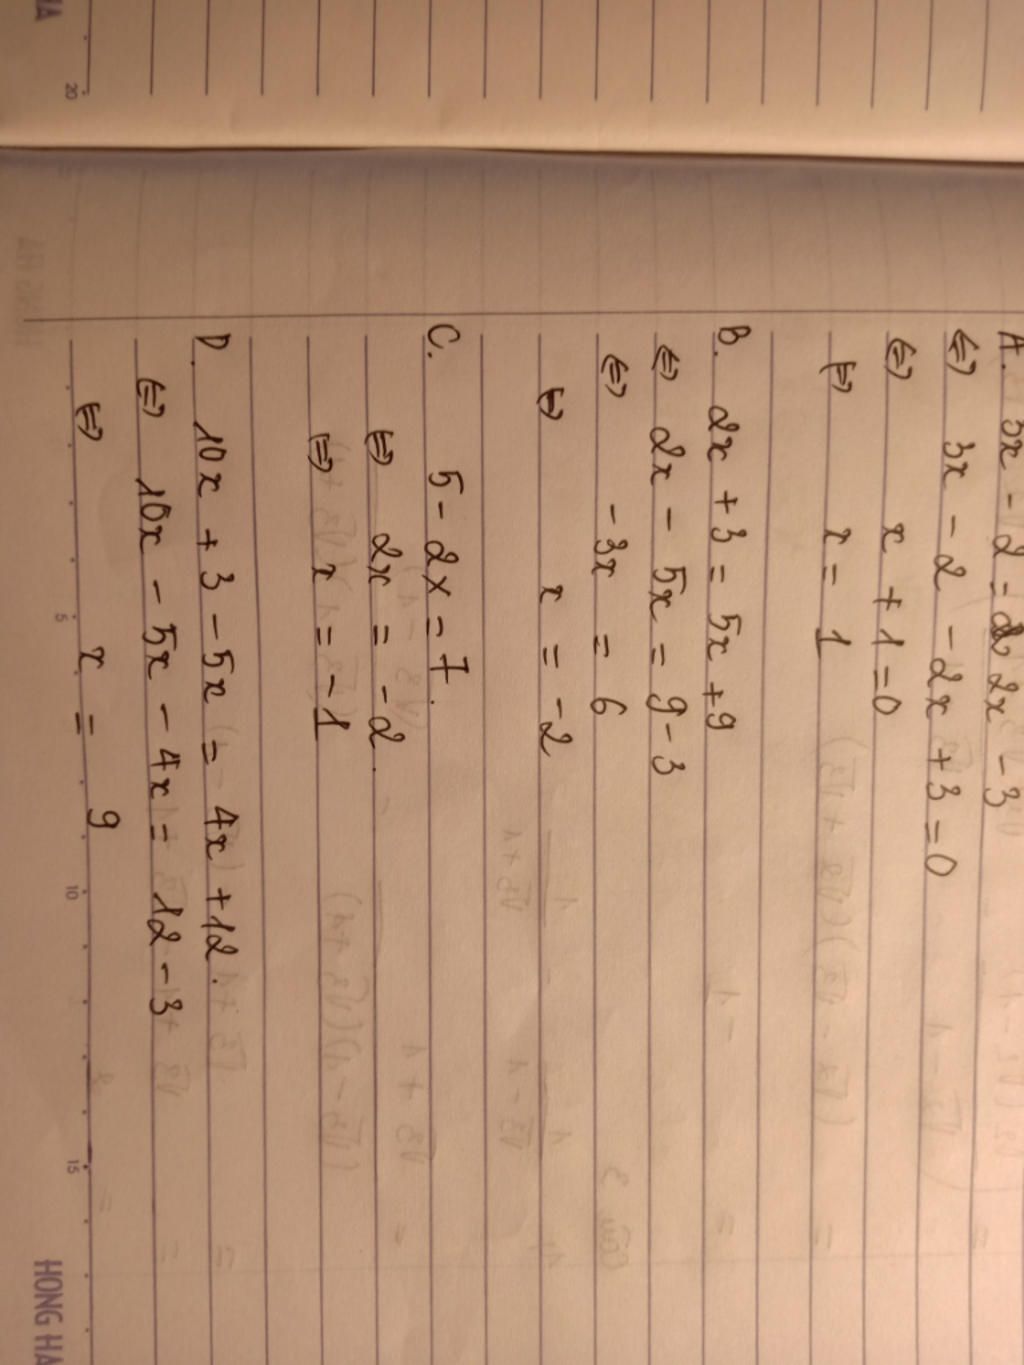 A. 3x - 2 = 2x - 3
⇔ 3x - 2 - 2x + 3 = 0
⇔ x + 1 = 0
⇔ x = 1
B. 2x + 3 = 5x + 9
⇔ 2x - 5x = 9 - 3
⇔ -3x = 6
⇔ x = -2
C. 5 - 2x = 7.
⇔ 2x = -2.
⇔ x = -1
D. 10x + 3 - 5x = 4x + 12.
⇔ 10x - 5x - 4x = 12 - 3
⇔ x = 9
20
5 10 15
HONG HA